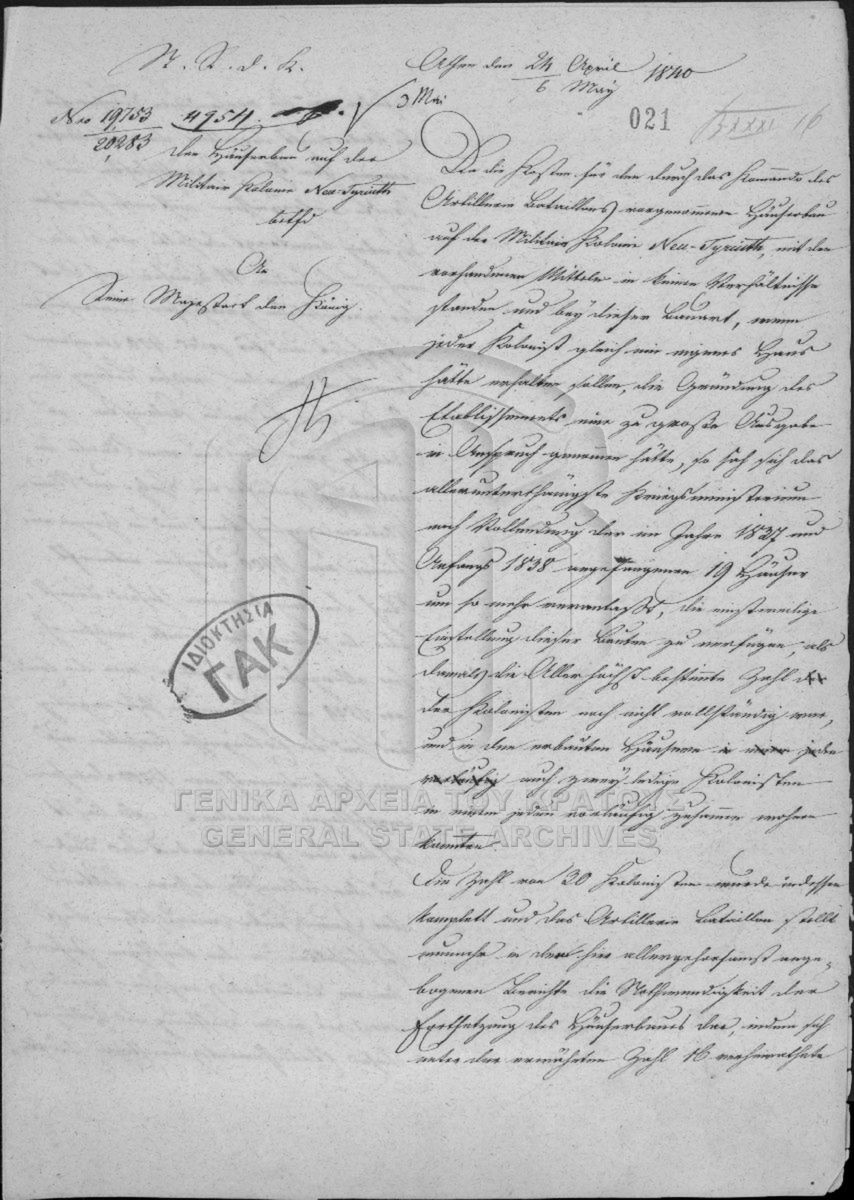 St. K. d. K.
Athen den 24 April 1840
6 May
3 Mai
Nro 19,753 4954.
20,283
021
den Häuserbau auf der
Militair Kolonie Neu-Tyrinth
betfd
An
Seine Majestaet den König.
Da die Kosten für den durch das Kommando des
Artillerie Bataillons vorgenommene Häuserbau
auf der Militair Kolonie Neu-Tyrinth, mit den
vorhandenen Mitteln in keinem Verhältnisse
standen und bey dieser Bauart, wenn
jeder Kolonist gleich ein eigenes Haus
hätte erhalten sollen, die Gründung des
Etablissements eine zu große Ausgabe
in Anspruch genomen hätte, so sah sich das
allerunterthänigste Kriegsministerium
nach Vollendung der im Jahre 1837 und
Anfangs 1838 angefangenen 19 Häuser
um so mehr veranlaßt, die einstweilige
Einstellung dieser Bauten zu verfügen, als
damals die Allerhöchst bestimte Zahl der
der Kolonisten noch nicht vollständig war,
und in den erbauten Häusern in einem jeden
vorläufig auch zwey ledige Kolonisten
in einem jeden vorläufig zusammen wohnen
konnten.
Die Zahl von 30 Kolonisten wurde indessen
komplett und das Artillerie Bataillon stellt
nunmehr in dem hier allergehorsamst ange-
bogenen Berichte die Nothwendigkeit der
Fortsetzung des Häuserbaues dar, indem sich
unter der erwähnten Zahl 16 verheirathete
ΙΔΙΟΚΤΗΣΙΑ
ΓΑΚ
ΓΕΝΙΚΑ ΑΡΧΕΙΑ ΤΟΥ ΚΡΑΤΟΥΣ
GENERAL STATE ARCHIVES